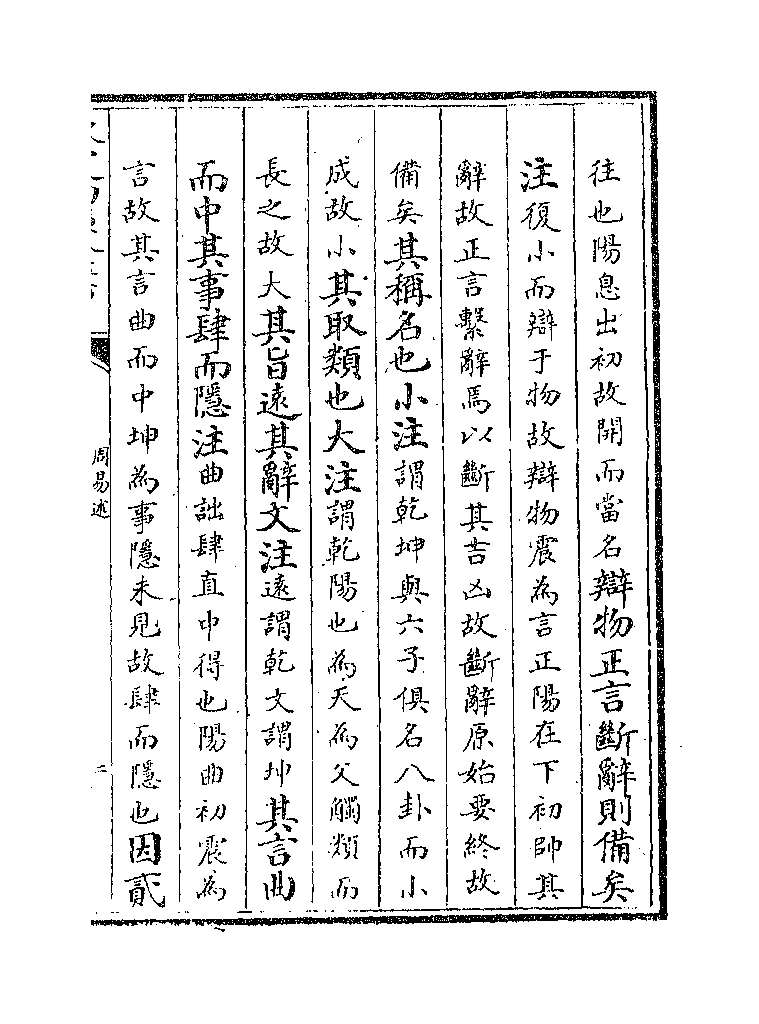 往也陽息出初故開而當名辯物正言斷辭則備矣
注復小而辯于物故辯物震為言正陽在下初帥其
辭故正言繫辭焉以斷其吉凶故斷辭原始要終故
備矣其稱名也小注謂乾坤與六子俱名八卦而小
成故小其取類也大注謂乾陽也為天為父觸類而
長之故大其旨遠其辭文注遠謂乾文謂坤其言曲
而中其事肆而隱注曲詘肆直中得也陽曲初震為
言故其言曲而中坤為事隱未見故肆而隱也因貳
周易述